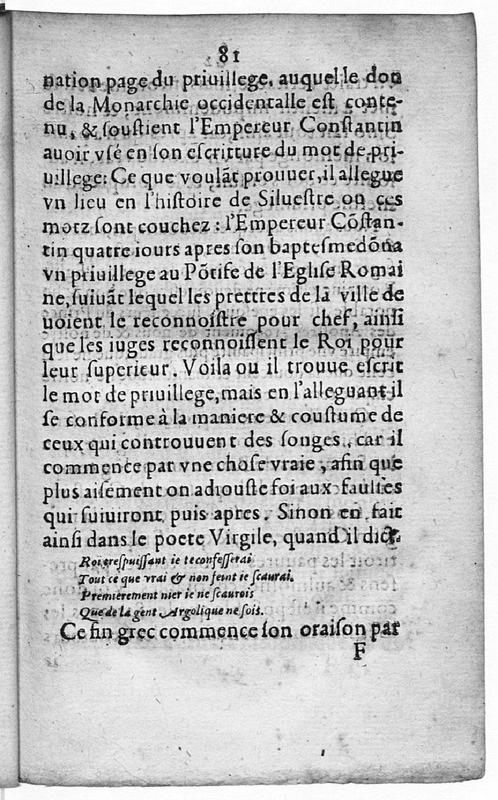 81
nation page du priuillege, auquel le don
de la Monarchie occidentalle est conte-
nu, & soustient l'Empereur Constantin
auoir vsé en son escritture du mot de pri-
uillege: Ce que voulãt prouuer, il allegue
vn lieu en l'histoire de Siluestre ou ces
motz sont couchez : l'Empereur Cõstan-
tin quatre iours apres son baptesmedõna
vn priuillege au Põtife de l'Eglise Romai
ne, suiuãt lequel les prettres de la ville de
uoient le reconnoistre pour chef, ainsi
que les iuges reconnoissent le Roi pour
leur superieur. Voila ou il trouue escrit
le mot de priuillege, mais en l'alleguant il
se conforme à la maniere & coustume de
ceux qui controuuent des songes, car il
commence par vne chose vraie, afin que
plus aisement on adiouste foi aux faultes
qui suiuiront puis apres. Sinon en fait
ainsi dans le poete Virgile, quand il dict.
Roi trespuissant ie te confesserai
Tout ce que vrai & non feint ie scaurai,
Premierement nier ie ne scaurois
Que de la gent Argolique ne sois.
Ce fin grec commence son oraison par
F